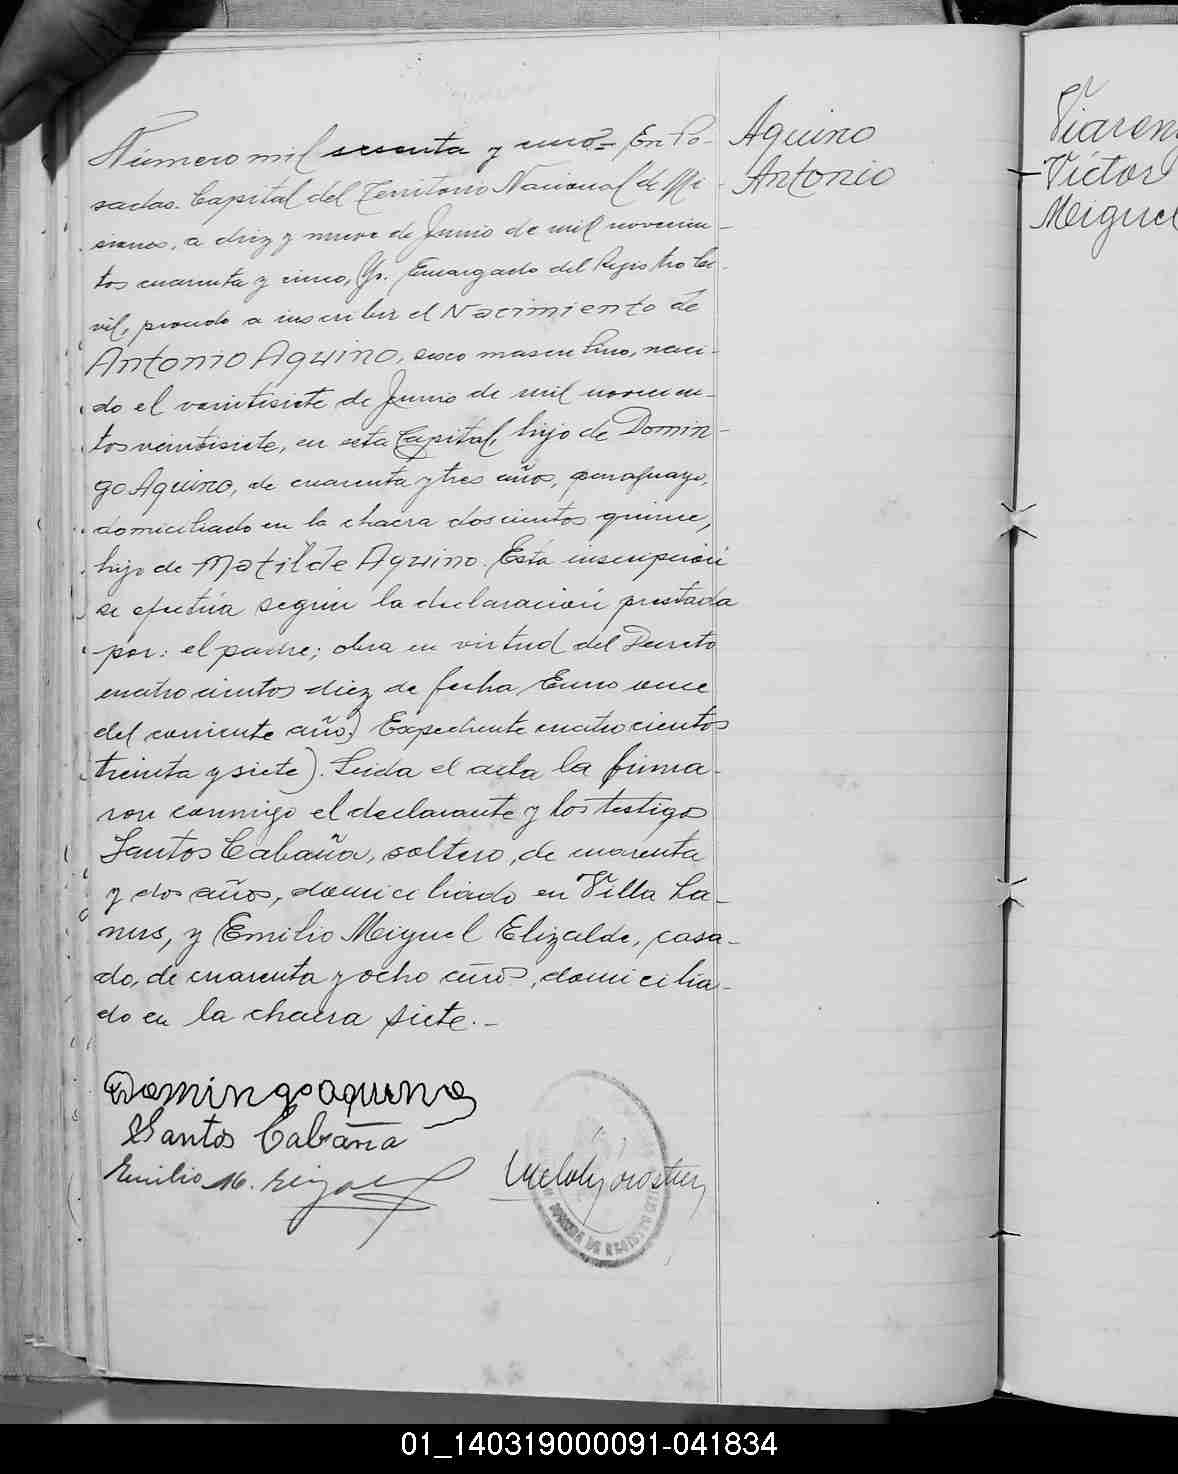 Número mil sesenta y uno= En Po-
sadas. Capital del Territorio Nacional de Mi
siones, a diez y nueve de Junio de mil novecien-
tos cuarenta y cinco, Yo. Encargado del Registro Ci-
vil, procedo a inscribir el Nacimiento de
Antonio Aquino, sexo masculino, naci-
do el veintisiete de Junio de mil novecien-
tos veintisiete, en esta Capital, hijo de Domin-
go Aquino, de cuarenta y tres años, paraguayo,
domiciliado en la chacra doscientos quince,
hijo de Matilde Aquino. Esta inscripción
se efectúa según la declaración prestada
por: el padre; obra en virtud del Decreto
cuatrocientos diez de fecha Enero once
del corriente año) Expediente cuatrocientos
treinta y siete). Leida el acta la firma-
ron conmigo el declarante y los testigos
Santos Cabaña, soltero, de cuarenta
y dos años, domiciliado en Villa La-
nus, y Emilio Miguel Elizalde, casa-
do, de cuarenta y ocho años, domicilia-
do en la chacra siete.-
Domingo aquino
Santos Cabaña
Emilio M. Elizalde
DE REGISTRO
Aquino
Antonio
Víctor
Miguel
01_140319000091-041834